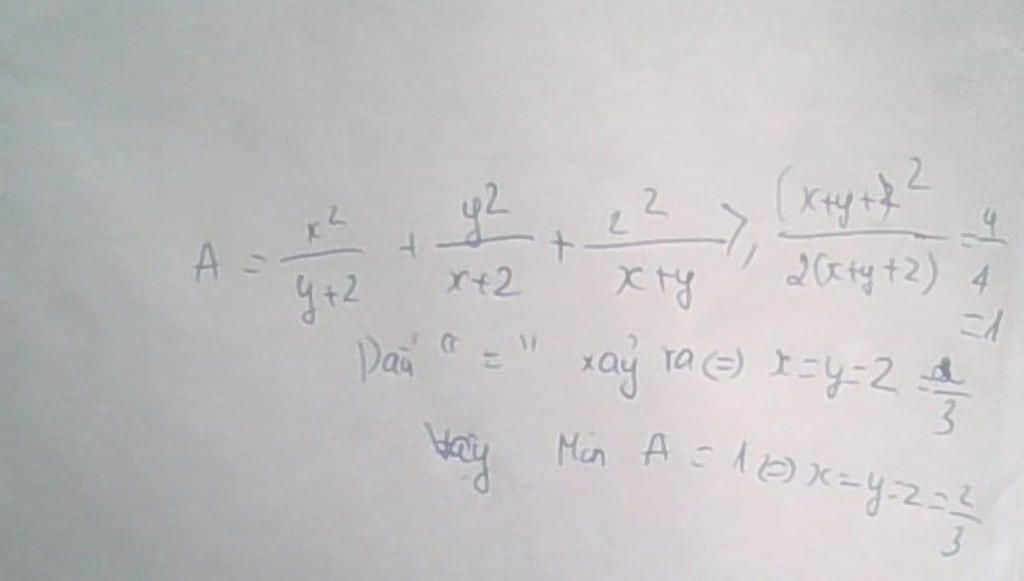 A = x²/(y+z) + y²/(x+z) + z²/(x+y) ≥ (x+y+z)²/2(x+y+z) = 4/4
= 1
Dấu "=" xảy ra <=> x=y=z = 2/3
Vậy Min A = 1 <=> x=y=z = 2/3